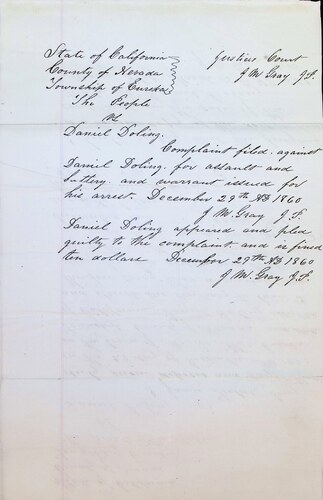 State of California
County of Nevada
Township of Eureka
Justices Court
J M Gray J.P.
The People
vs
Daniel Doling.
Complaint filed. against
Daniel Doling. for assault and
battery. and warrant issued for
his arrest. December 29th AD 1860
J M. Gray J.P.
Daniel Doling appeared and pled
guilty to the complaint. and is fined
ten dollars December 29th AD 1860
J M. Gray J.P.